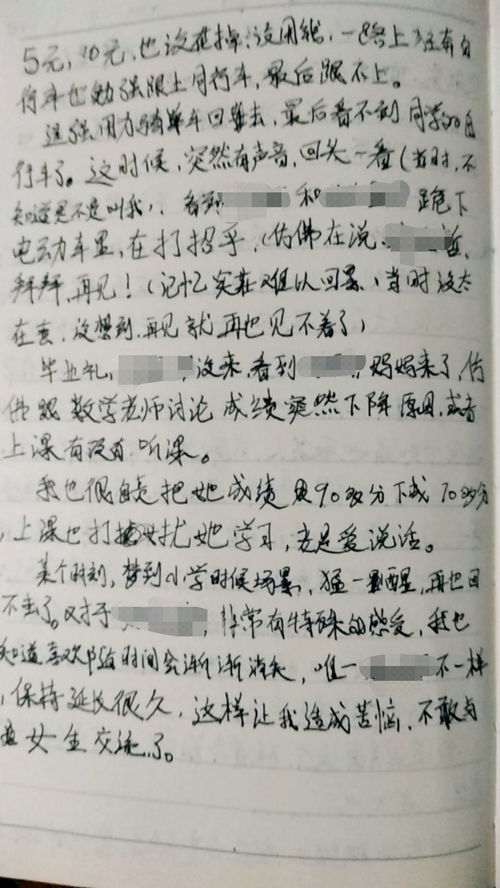 5元,10元,也没花掉,没用钱,一路上,还有自
行车也勉强跟上同行车,最后跟不上。
这强用力骑单车回去,最后看不到同学的自
行车了。这时候,突然有声音,回头一看(当时,不
知道是不是叫我),看到 和 跪下
电动车里,在打招乎,(仿佛在说,
拜拜,再见!(记忆实在难以回忆,当时没太
在意,没想到,再见就再也见不着了)
毕业礼, 没来,看到 妈妈来了,仿
佛跟数学老师讨论成绩突然下降原因,或者
上课有没有听课。
我也很自责把她成绩 90多分下成70多分
,上课也打扰她学习,老是爱说话。
某个时刻,梦到小学时候场景,猛一醒,再也回
不去了。对于 ,非常有特殊的感受,我也
知道喜欢 时间会渐渐消失,唯一 不一样
,保持延长很久,这样让我造成苦恼,不敢与
女生交流了。